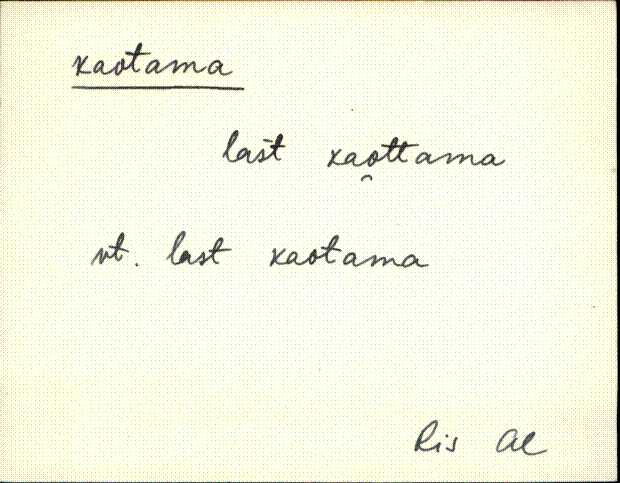 kaotama
last̄ kao̯ttama
vt. last kaotama
Ris Al